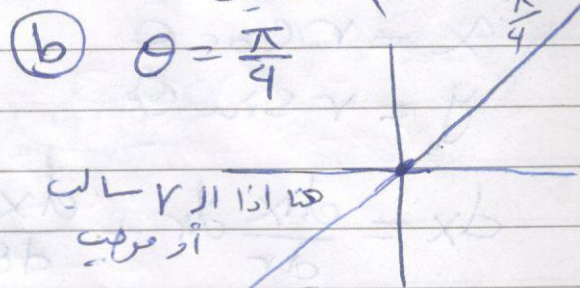 ⓑ θ = π/4
π/4
هنا اذا ال r سالب
أو موجب